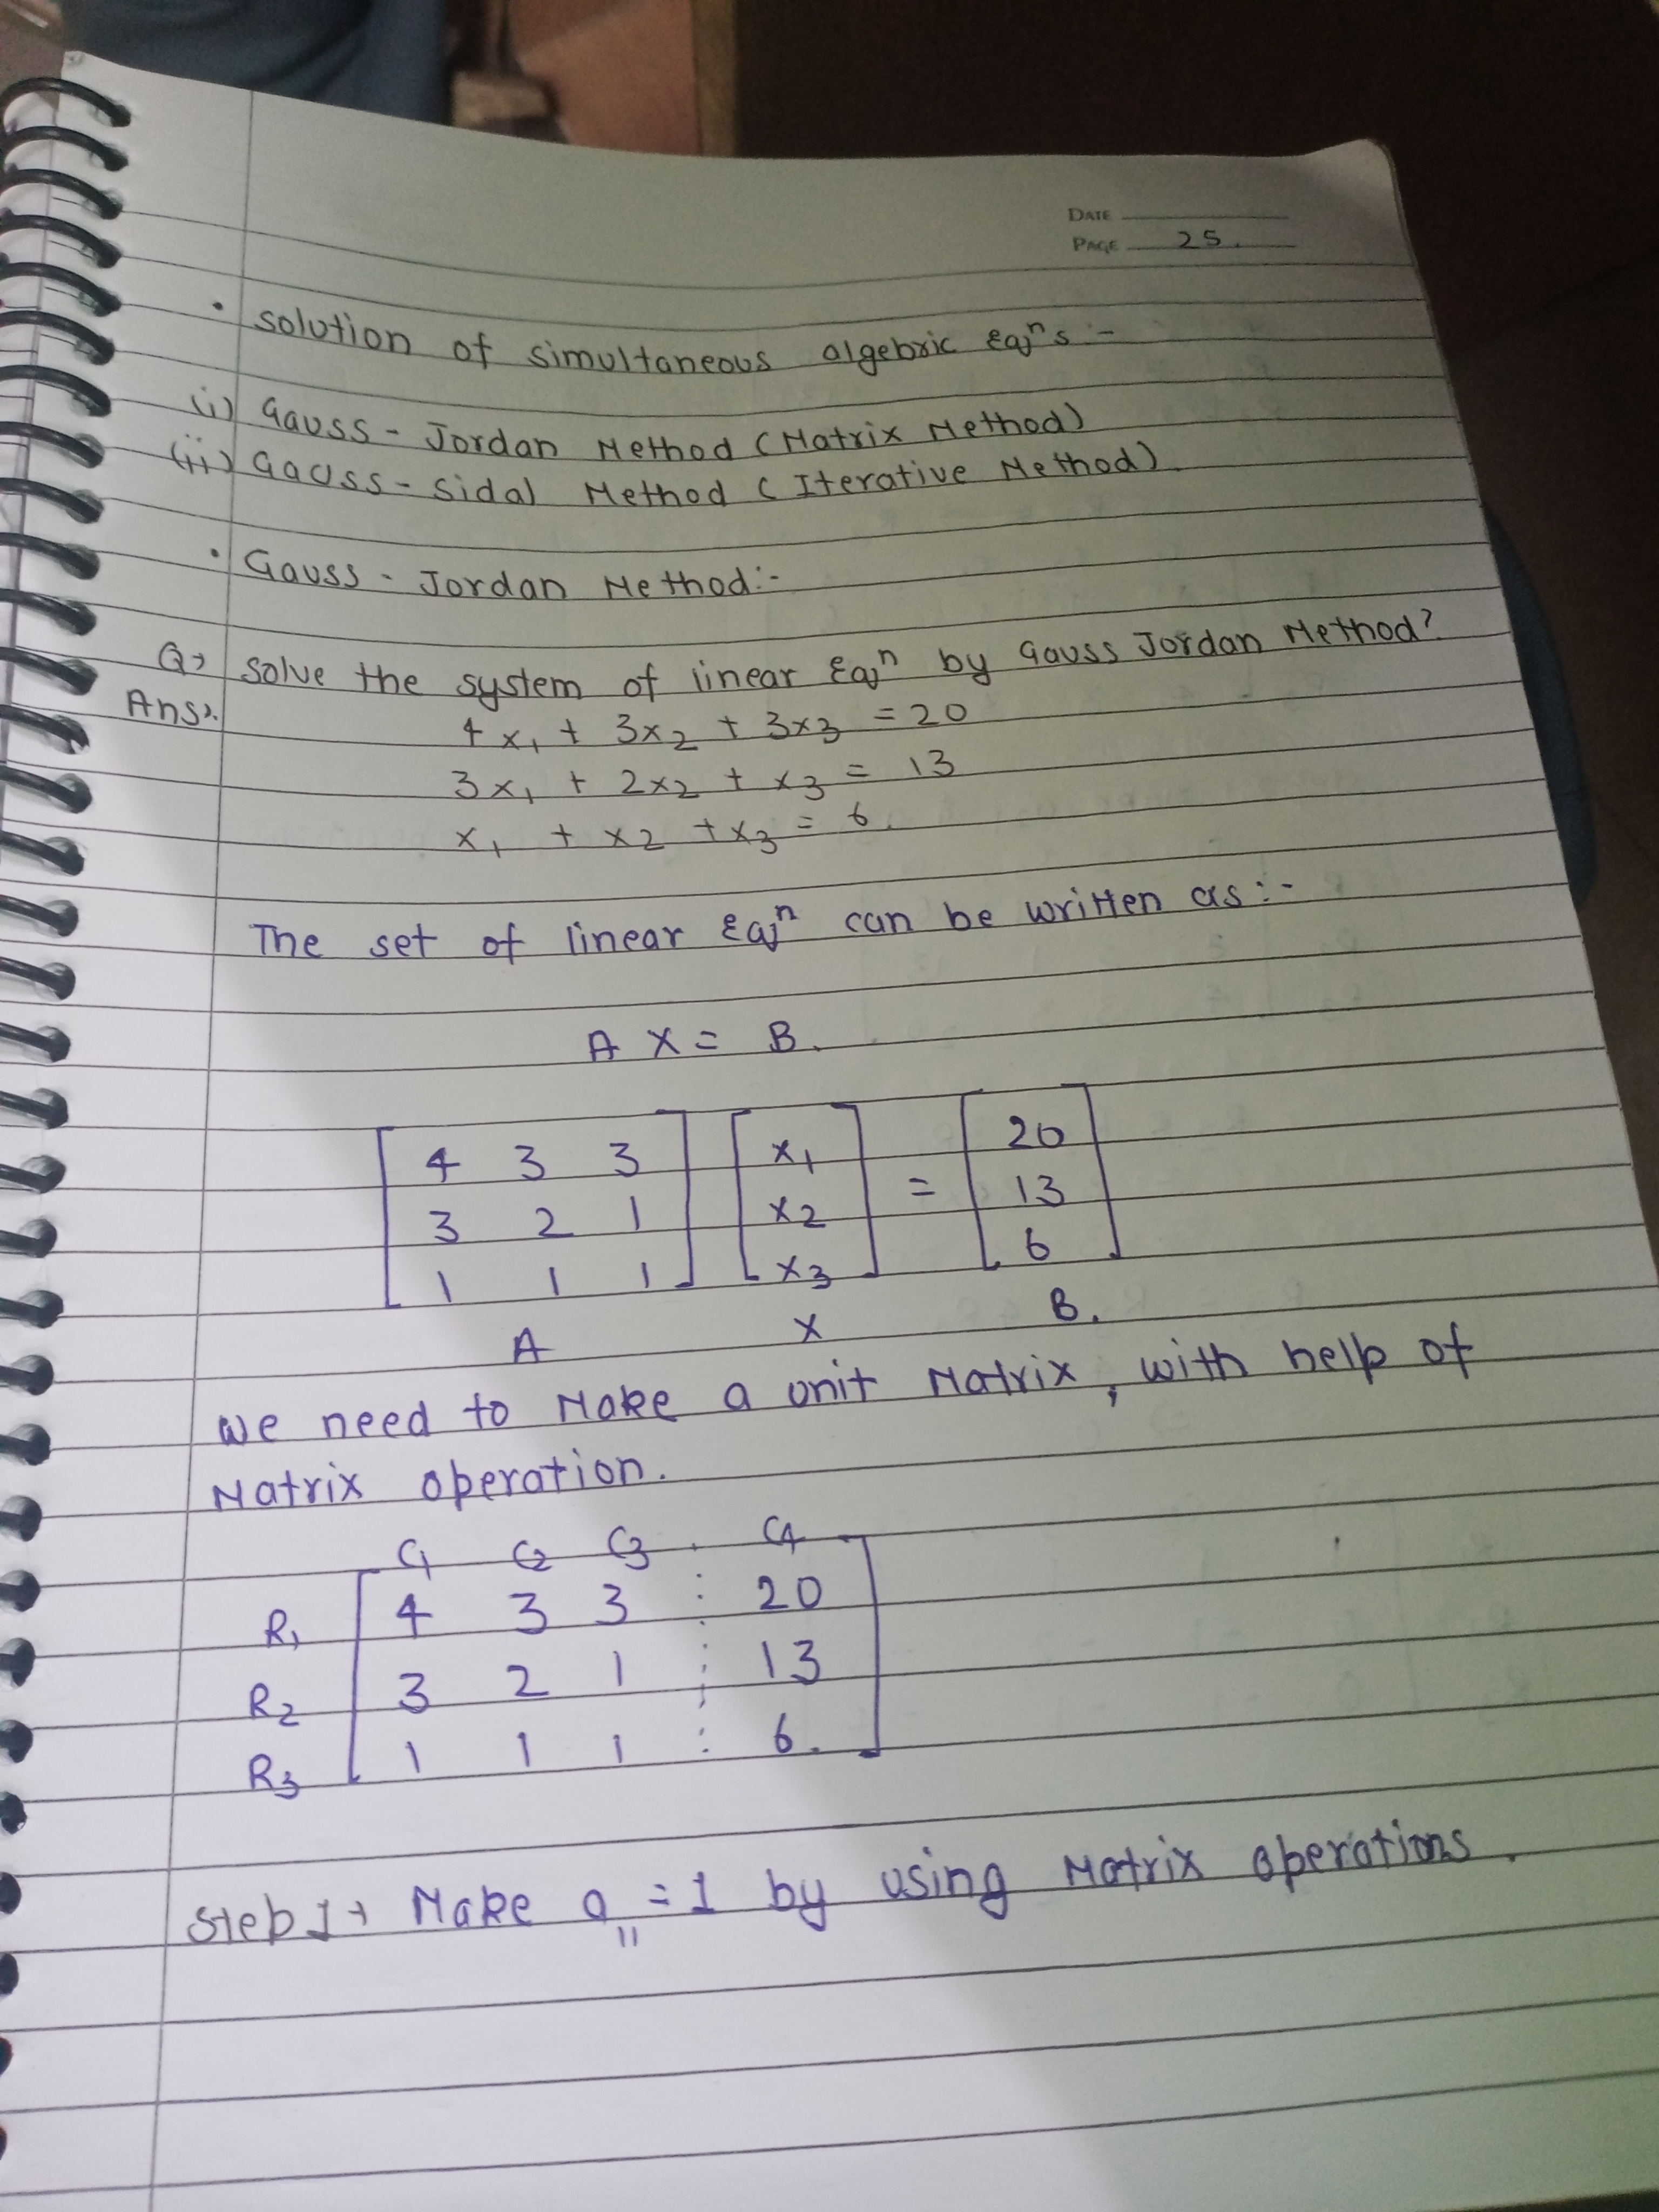 DATE
PAGE 25.
• Solution of simultaneous algebric Eqⁿs :-
(i) Gauss - Jordan Method (Matrix Method)
(ii) Gauss - Sidal Method (Iterative Method).
• Gauss - Jordan Method:-
Q→ Solve the system of linear Eqⁿ by Gauss Jordan Method?
Ans→.
4x₁ + 3x₂ + 3x₃ = 20
3x₁ + 2x₂ + x₃ = 13
x₁ + x₂ + x₃ = 6.
The set of linear Eqⁿ can be written as:-
A X = B.
[ 4 3 3 ] [ x₁ ] = [ 20 ]
[ 3 2 1 ] [ x₂ ] [ 13 ]
[ 1 1 1 ] [ x₃ ] [ 6 ]
A X B.
We need to Make a unit Matrix, with help of
Matrix operation.
C₁ C₂ C₃ : C₄
R₁ [ 4 3 3 : 20 ]
R₂ [ 3 2 1 : 13 ]
R₃ [ 1 1 1 : 6. ]
Step 1→ Make a₁₁ = 1 by using Matrix operations.